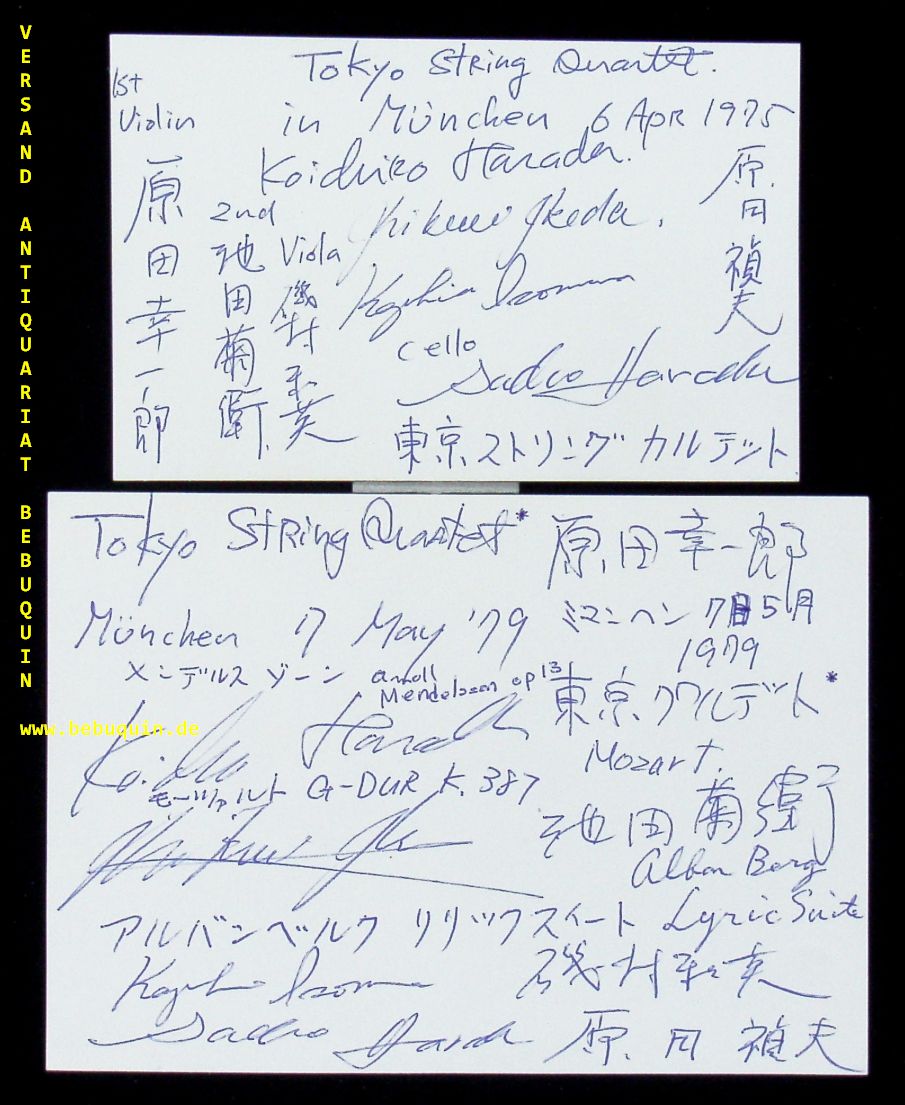 VERSAND ANTIQUARIAT BEBUQUIN
www.bebuquin.de
Tokyo String Quartet.
1st Violin
in München 6 Apr 1975
Koichiro Harada.
原田幸一郎
2nd
池田菊衛
Kikuei Ikeda.
Viola
磯村和英
Kazuhide Isomura
cello
Sadao Harada
原田禎夫
東京ストリングカルテット
Tokyo String Quartet*
原田幸一郎
München 17 May '79
ミュンヘン 7日5月
1979
メンデルスゾーン amoll
Mendelsson op 13
東京クワルテット*
Harada
Mozart.
モーツァルト G-DUR K. 387
池田菊衛
Alban Berg
アルバンベルク リリックスイート Lyric Suite
Isomura
磯村和英
Sadao Harada
原田禎夫